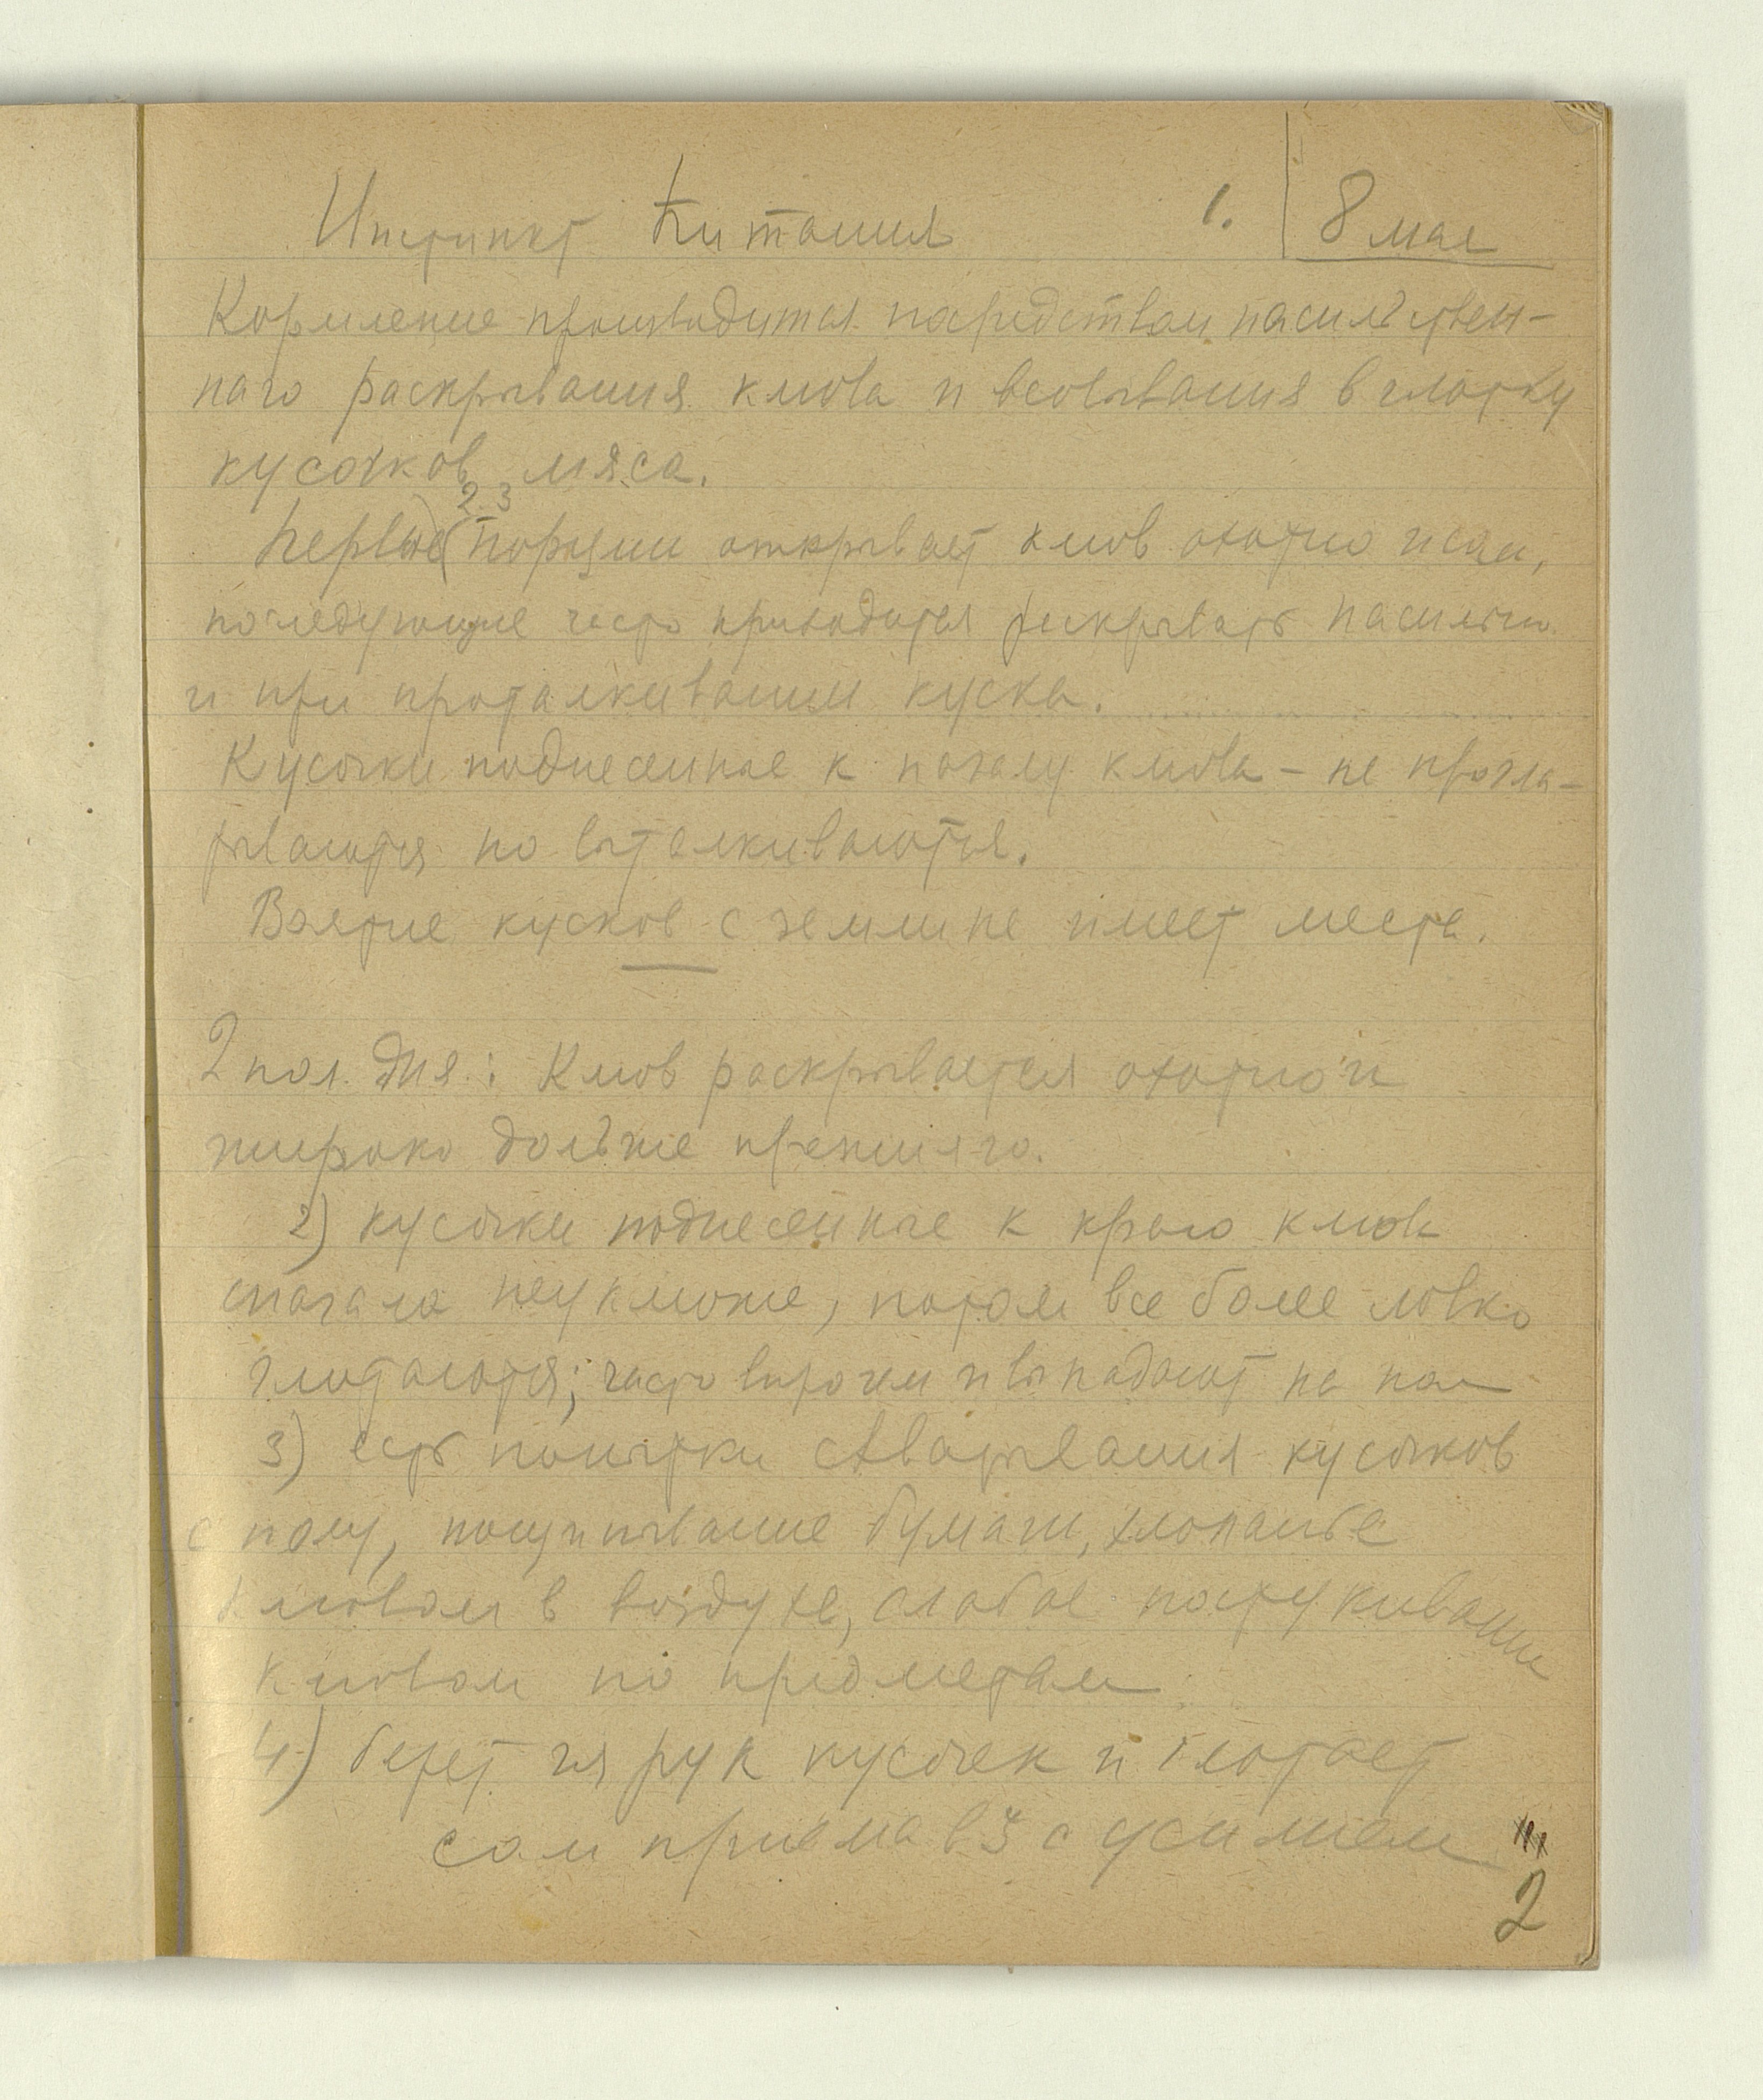 Инстинкт Питания 1. 8 мая
Кормление производится посредством насильствен-
наго раскрывания клюва и всовывания в глотку
кусочков мяса.
2 3
Первые порции открывает клюв охотно и сам,
последующие часто приходится раскрывать насильно
и при проталкивании куска.
Кусочки поднесенные к началу клюва – не прогла-
тываются но выталкиваются.
Взятие кусков с земли не имеет места.
2 пол. дня: Клюв раскрывается охотно и
широко дольше прежняго.
2) кусочки поднесенные к краю клюва
сначала неуклюже, потом все более ловко
глотаются; часто впрочем и выпадают на пол
3) есть попытки схватывания кусочков
с полу, пощипывание бумаги, хлопанье
клювом в воздухе, слабое постукивание
клювом по предметам
4) берет из рук кусочек и глотает
сам приема в 3 с усилием
2